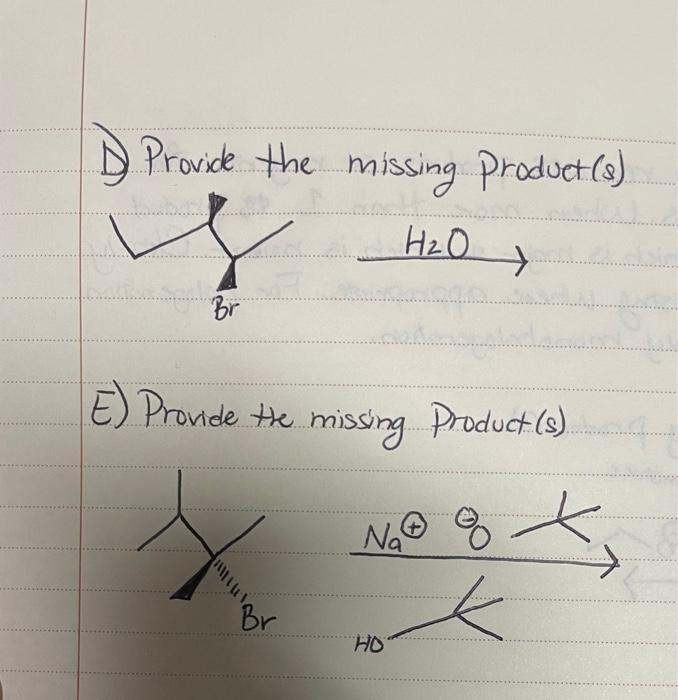 D) Provide the missing product(s)
H2O
Br
E) Provide the missing Product(s)
Na⊕ ⊖O
Br
HO